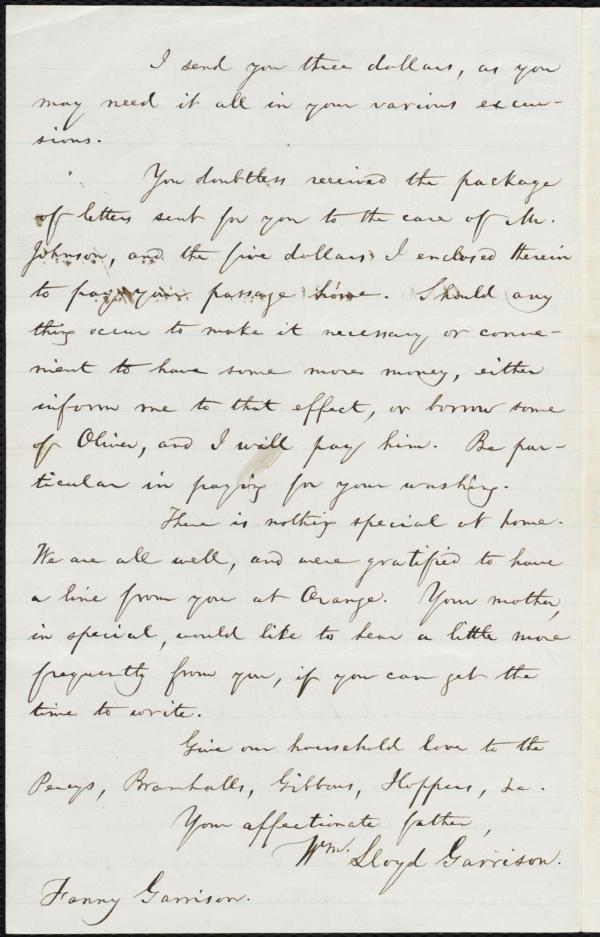 I send you three dollars, as you
may need it all in your various excur-
sions.
You doubtless received the package
of letters sent for you to the care of Mr.
Johnson, and the five dollars I enclosed therein
to pay your passage home. Should any
thing occur to make it necessary or conve-
nient to have some more money, either
inform me to that effect, or borrow some
of Oliver, and I will pay him. Be par-
ticular in paying for your washing.
There is nothing special at home.
We are all well, and were gratified to have
a line from you at Orange. Your mother,
in special, would like to hear a little more
frequently from you, if you can get the
time to write.
Give our household love to the
Percys, Bramhalls, Gibbons, Hoppers, &c.
Your affectionate father,
Wm. Lloyd Garrison.
Fanny Garrison.